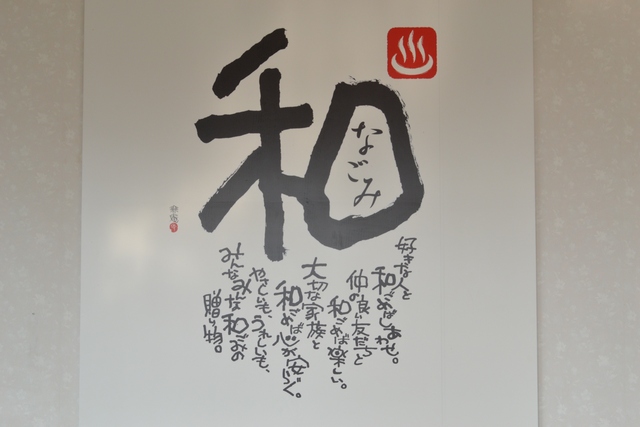 和
なごみ
好きな人と
和ごめばしあわせ。
仲の良い友だちと
和ごめば楽しい。
大切な家族と
和ごめば心が安らぐ。
やさしいも、うれしいも、
みんなみんな和ごみの
贈り物。